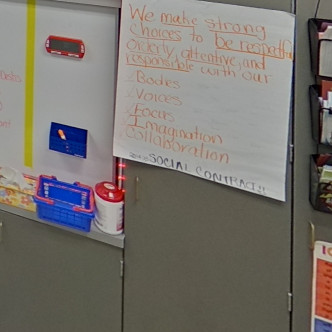 We make strong
choices to be respectful
orderly, attentive, and
responsible with our
Bodies
Voices
Focus
Imagination
Collaboration
SOCIAL CONTRACT